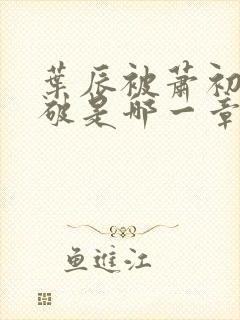 葉辰被蕭初
破是哪一章
魚進江